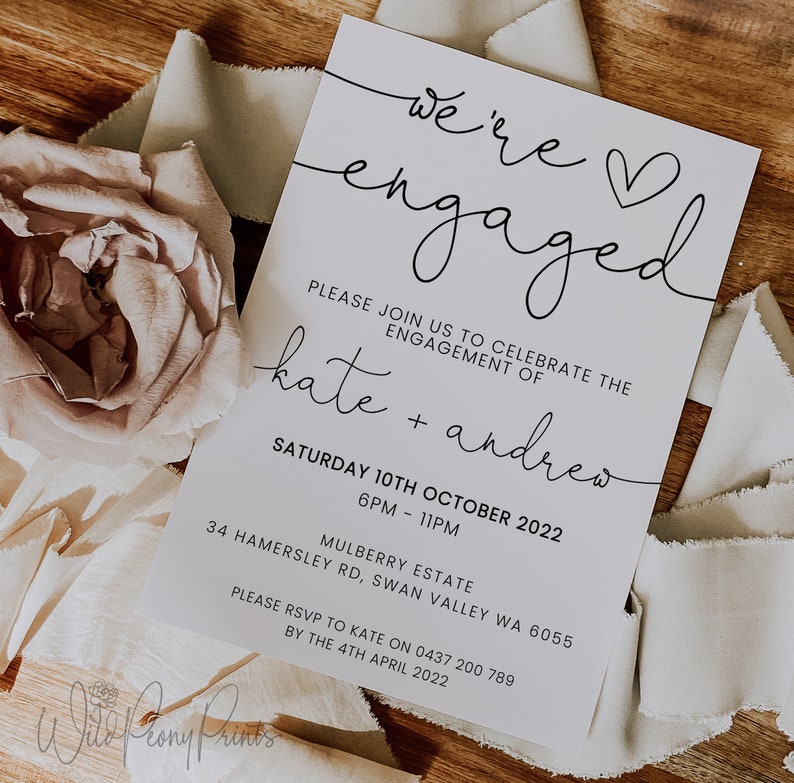 we're
engaged
PLEASE JOIN US TO CELEBRATE THE
ENGAGEMENT OF
kate + andrew
SATURDAY 10TH OCTOBER 2022
6PM - 11PM
MULBERRY ESTATE
34 HAMERSLEY RD, SWAN VALLEY WA 6055
PLEASE RSVP TO KATE ON 0437 200 789
BY THE 4TH APRIL 2022
WildPeonyPrints